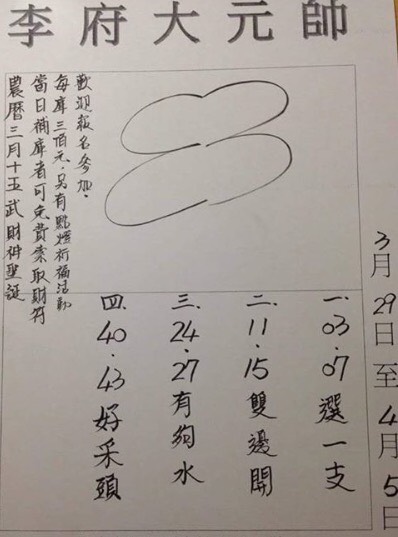 李府大元帥
3月29日至4月5日
歡迎報名參加.
每庫三佰元,另有點燈祈福活動
當日補庫者可免費索取財符
農曆三月十五武財神聖誕
一.03.07選一支
二.11.15雙邊開
三.24.27有夠水
四.40.43好采頭